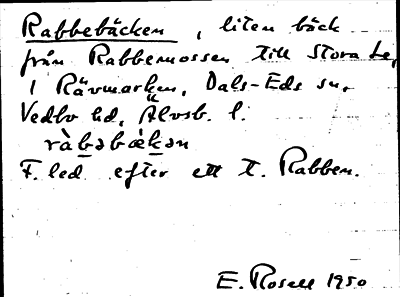 Rabbebäcken, liten bäck
från Rabbemossen till Stora Le,
i Rävmarken, Dals-Eds sn,
Vedbo hd, Älvsb. l.
ràbəbækən
F. led efter ett t. Rabben.
E. Rosell 1950